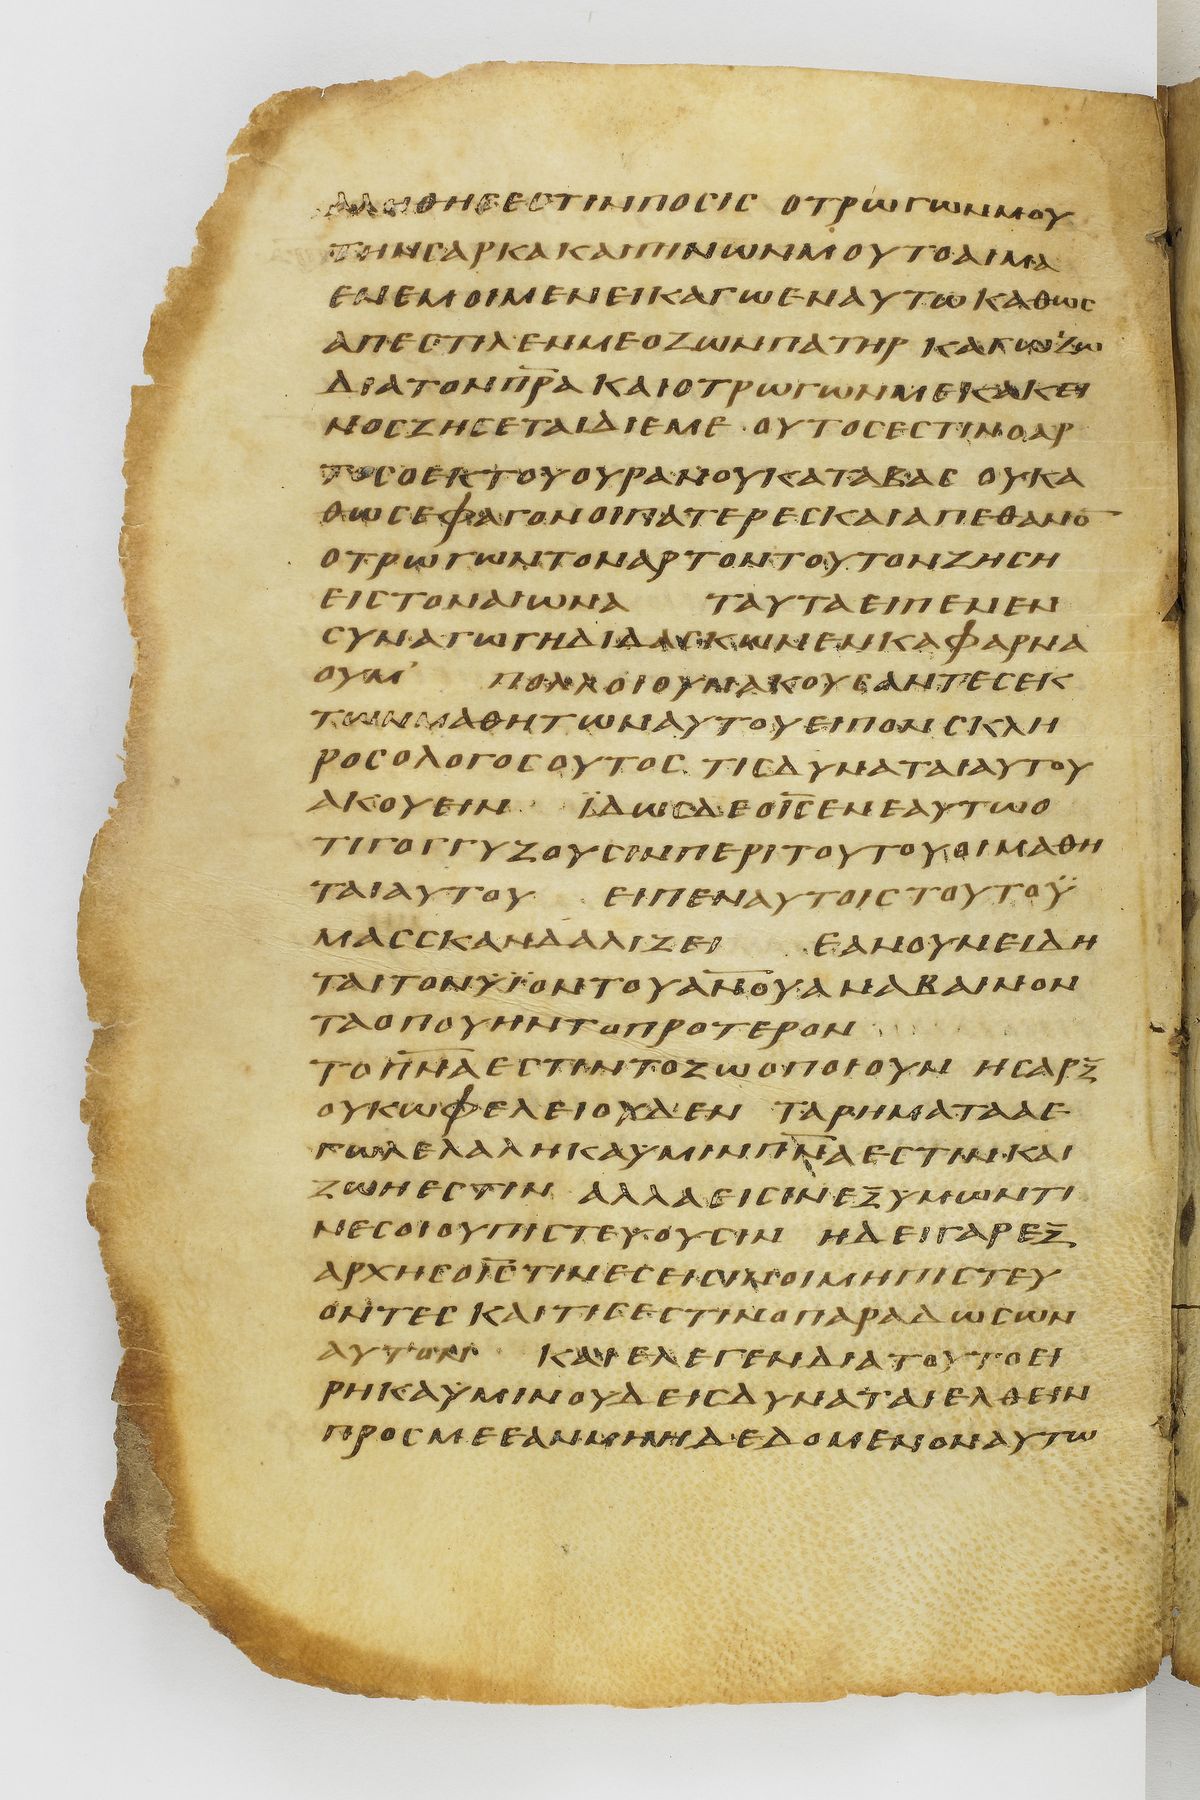 ΑΛΗΘΗϹΕϹΤΙΝΠΟϹΙϹ ΟΤΡΩΓΩΝΜΟΥ
ΤΗΝϹΑΡΚΑΚΑΙΠΙΝΩΝΜΟΥΤΟΑΙΜΑ
ΕΝΕΜΟΙΜΕΝΕΙΚΑΓΩΕΝΑΥΤΩ ΚΑΘΩϹ
ΑΠΕϹΤΙΛΕΝΜΕΟΖΩΝΠΑΤΗΡ ΚΑΓΩΖΩ
ΔΙΑΤΟΝΠ̅Ρ̅Α ΚΑΙΟΤΡΩΓΩΝΜΕΚΑΚΕΙ
ΝΟϹΖΗϹΕΤΑΙΔΙΕΜΕ ΟΥΤΟϹΕϹΤΙΝΟΑΡ
ΤΟϹΟΕΚΤΟΥΟΥΡΑΝΟΥΚΑΤΑΒΑϹ ΟΥΚΑ
ΘΩϹΕΦΑΓΟΝΟΙΠΑΤΕΡΕϹΚΑΙΑΠΕΘΑΝΟ̅
ΟΤΡΩΓΩΝΤΟΝΑΡΤΟΝΤΟΥΤΟΝΖΗϹΗ
ΕΙϹΤΟΝΑΙΩΝΑ ΤΑΥΤΑΕΙΠΕΝΕΝ
ϹΥΝΑΓΩΓΗΔΙΔΑϹΚΩΝΕΝΚΑΦΑΡΝΑ
ΟΥΜ ΠΟΛΛΟΙΟΥΝΑΚΟΥϹΑΝΤΕϹΕΚ
ΤΩΝΜΑΘΗΤΩΝΑΥΤΟΥΕΙΠΟΝϹΚΛΗ
ΡΟϹΟΛΟΓΟϹΟΥΤΟϹ ΤΙϹΔΥΝΑΤΑΙΑΥΤΟΥ
ΑΚΟΥΕΙΝ ΪΔΩϹΔΕΟΙ̅Ϲ̅ΕΝΕΑΥΤΩΟ
ΤΙΓΟΓΓΥΖΟΥϹΙΝΠΕΡΙΤΟΥΤΟΥΟΙΜΑΘΗ
ΤΑΙΑΥΤΟΥ ΕΙΠΕΝΑΥΤΟΙϹΤΟΥΤΟΫ
ΜΑϹϹΚΑΝΔΑΛΙΖΕΙ ΕΑΝΟΥΝΕΙΔΗ
ΤΑΙΤΟΝΫΪΟΝΤΟΥΑ̅Ν̅Ο̅Υ̅ΑΝΑΒΑΙΝΟΝ
ΤΑΟΠΟΥΗΝΤΟΠΡΟΤΕΡΟΝ
ΤΟΠ̅Ν̅Α̅ΕϹΤΙΝΤΟΖΩΟΠΟΙΟΥΝ ΗϹΑΡΞ
ΟΥΚΩΦΕΛΕΙΟΥΔΕΝ ΤΑΡΗΜΑΤΑΑΕ
ΓΩΛΕΛΑΛΗΚΑΫΜΙΝΠ̅Ν̅Α̅ΕϹΤΙΝΚΑΙ
ΖΩΗΕϹΤΙΝ ΑΛΛΑΕΙϹΙΝΕΞΥΜΩΝΤΙ
ΝΕϹΟΙΟΥΠΙϹΤΕΥΟΥϹΙΝ ΗΔΕΙΓΑΡΕΞ
ΑΡΧΗϹΟΙ̅Ϲ̅ΤΙΝΕϹΕΙϹΙΝΟΙΜΗΠΙϹΤΕΥ
ΟΝΤΕϹ ΚΑΙΤΙϹΕϹΤΙΝΟΠΑΡΑΔΩϹΩΝ
ΑΥΤΟΝ ΚΑΙΕΛΕΓΕΝΔΙΑΤΟΥΤΟΕΙ
ΡΗΚΑΫΜΙΝΟΥΔΕΙϹΔΥΝΑΤΑΙΕΛΘΕΙΝ
ΠΡΟϹΜΕΕΑΝΜΗΗΔΕΔΟΜΕΝΟΝΑΥΤΩ